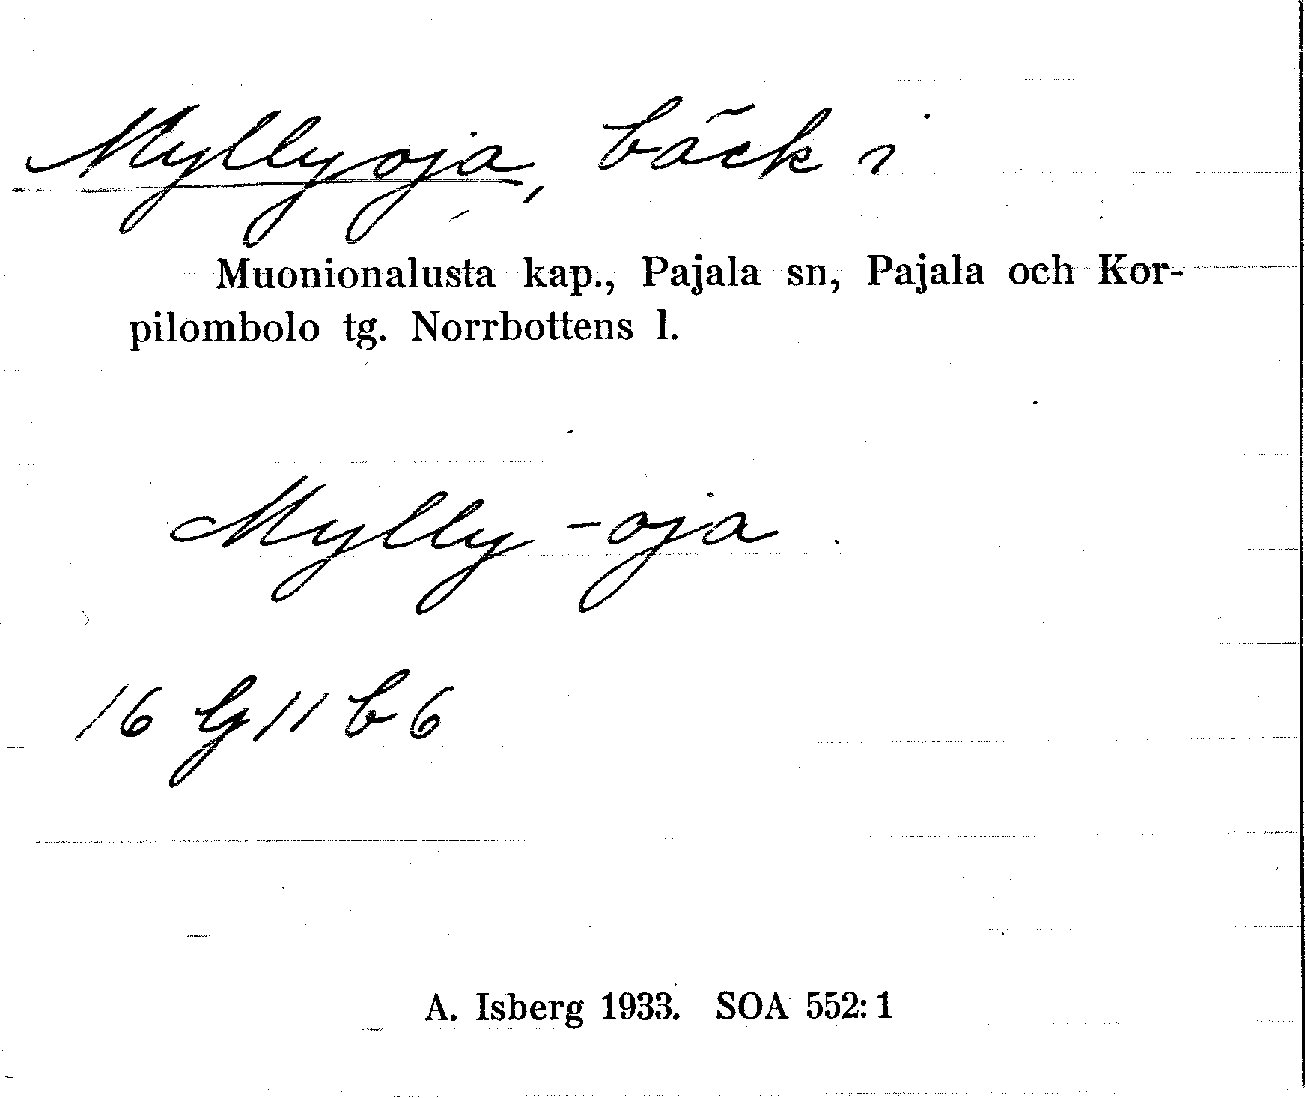 Myllyoja, bäck i
Muonionalusta kap., Pajala sn, Pajala och Kor-
pilombolo tg. Norrbottens l.
Mylly-oja
16 G 11 b 6
A. Isberg 1933. SOA 552:1